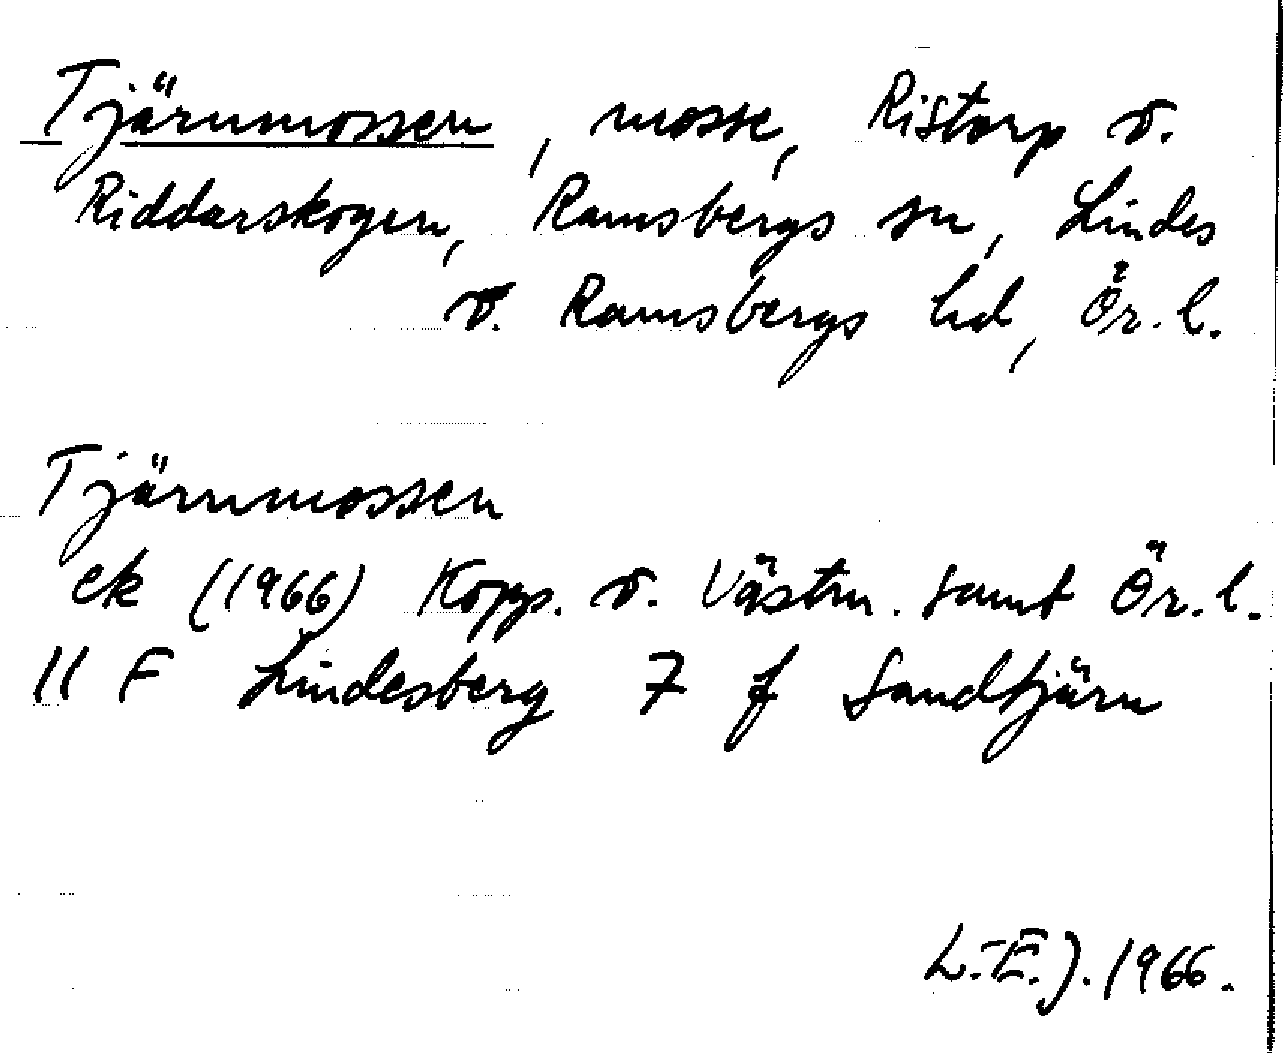 Tjärnmossen, mosse, Ristorp o.
Riddarskogen, Ramsbergs sn, Lindes
o. Ramsbergs hd, Ör. l.
Tjärnmossen
ek (1966) Kopp. o. Västm. samt Ör. l.
11 F Lindesberg 7 f Sandtjärn
L.-E. J. 1966.